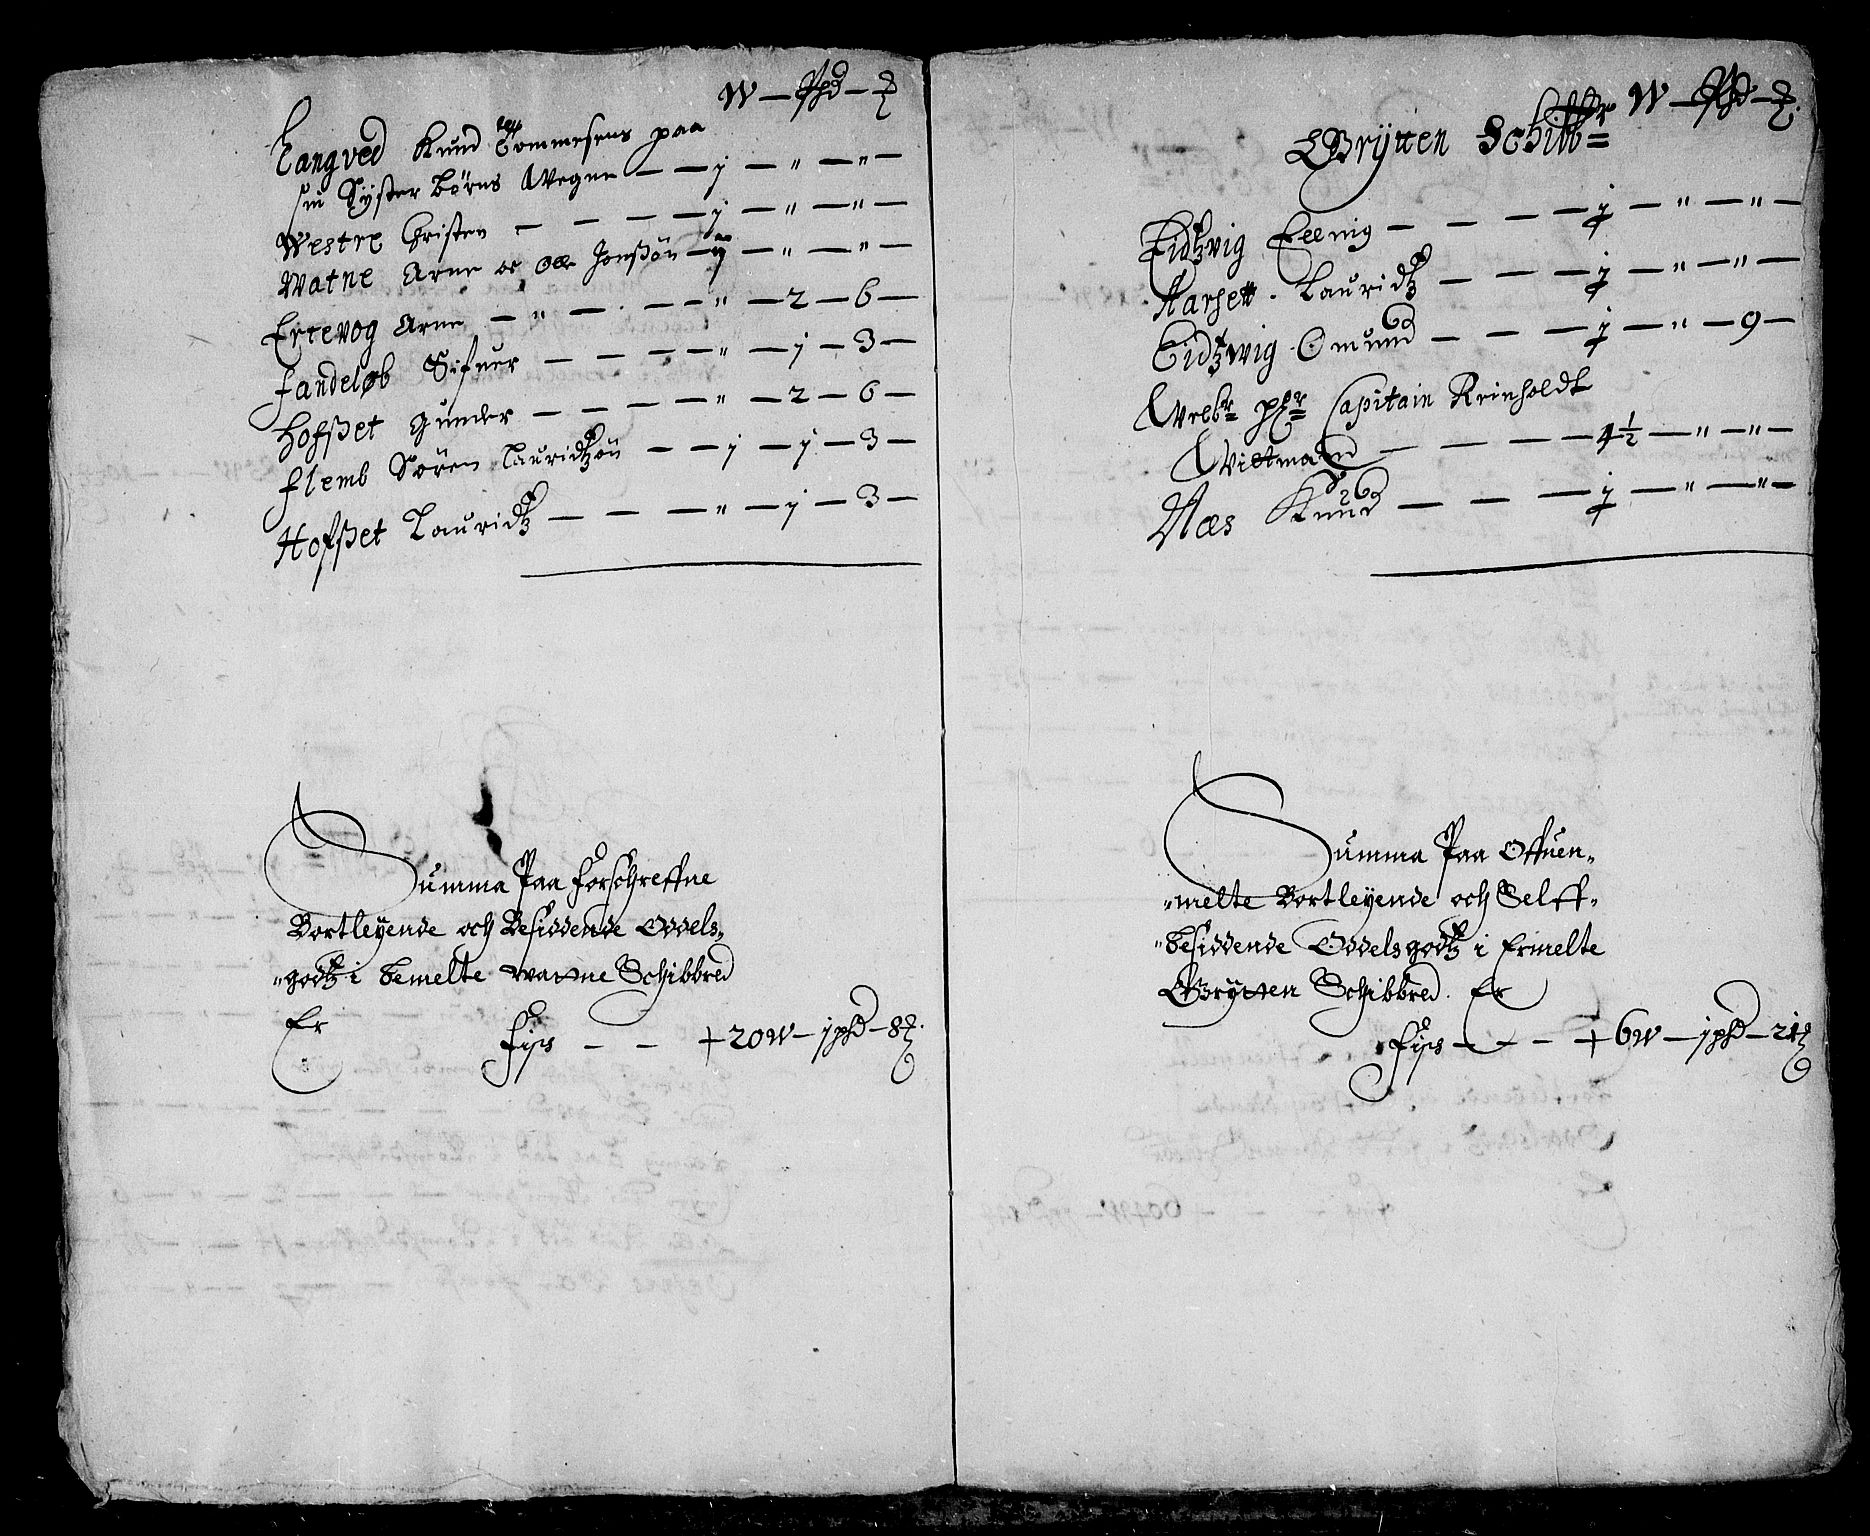 W — Phd — ℔
Langved Knud Tommesens paa
sin Syster børns Wegne — — j — " — " —
Westre Christen — — — — j — " — " —
Watne Arne oc Olle Jonßøn — ij — " — " —
Ertevog Arne — " — — — " — 2 — 6 —
fandeløb Sifuer — — — — " — j — 3 —
Hofßet Gunder — — — — " — 2 — 6 —
flemb Søren Lauridtzøn — — j — j — 3 —
Hofßet Lauridtz — — — — " — j — 3 —
Summa Paa forschreffne
Bortleyende och Besiddende Oddels„
„godtz i bemelte Watne Schibbred
Er
Fisk — — + 20 W — j phd — 8 ℔.
W — Phd — ℔.
Grytten Schibbr=
Eidtzvig Ellnig — — — — j — " — " —
Aarsett Lauridtz — — — j — " — " —
Eidtzwig Omund — — — j — " — 9 —
Welbr= Hr= Capitain Reinholdt
Wittmand — — — — 4 1/2 — " — " —
Næs Knud — — — j — " — " —
Summa Paa Offuen„
„melte Bortleyende och Selff„
„besiddende Oddelsgodtz i Ermelte
Grytten Schibbred. Er
Fisk — — — + 6 W — j phd — 21 ℔